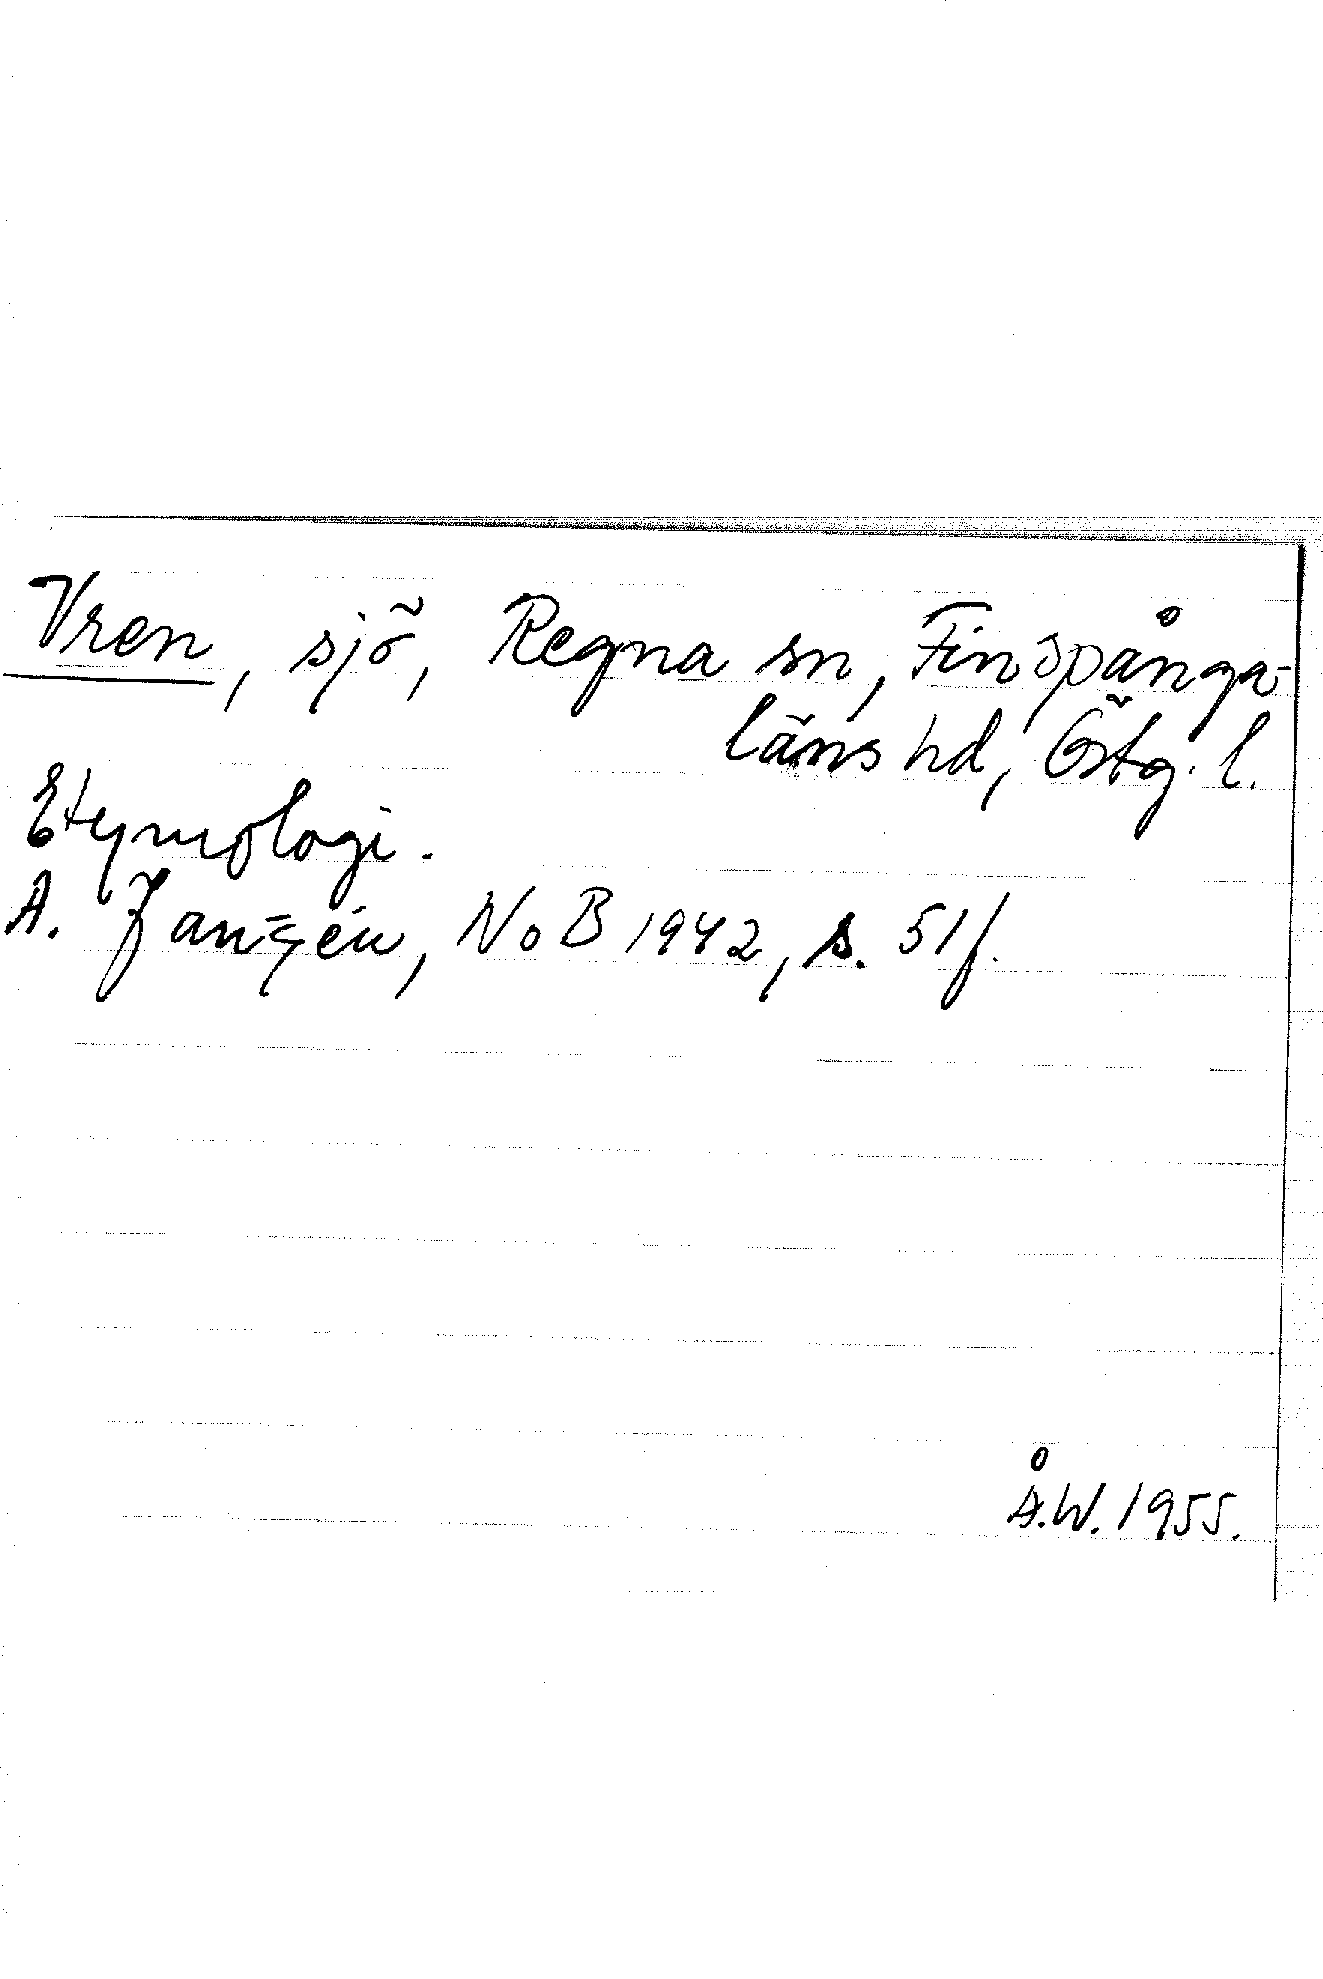 Vren, sjö, Regna sn, Finspånga-
läns hd, Östg. l.
Etymologi.
A. Janzén, NoB 1942, s. 51f.
Å.W. 1955.